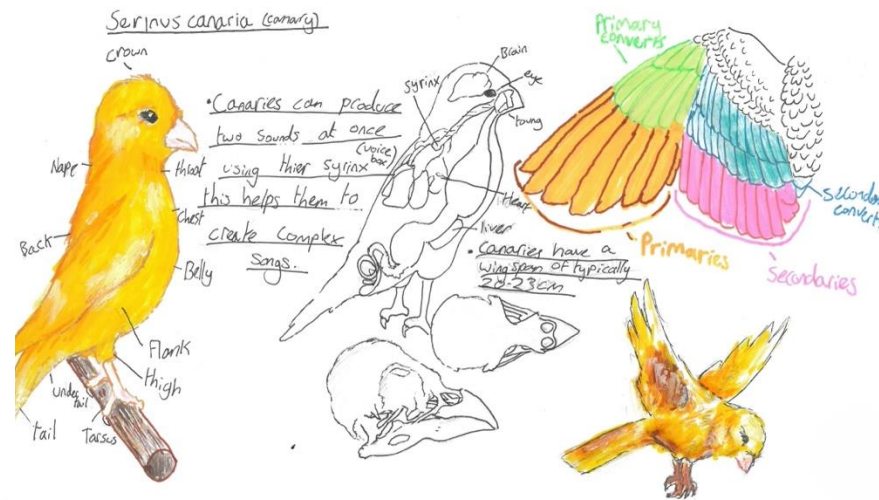 Serinus canaria (canary)
crown
Nape
throat
Chest
Back
Belly
Flank
thigh
under
tail
Tarsus
tail
• Canaries can produce
two sounds at once
using thier syrinx (voice box)
this helps them to
create complex
songs.
Brain
eye
syrinx
toung
Heart
liver
• Canaries have a
wingspan of typically
20-23cm
Primary
converts
Primaries
Secondaries
converts
Secondaries